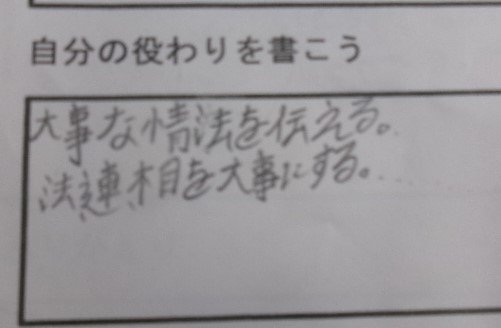 自分の役わりを書こう
大事な情法を伝える。
法連相を大事にする。